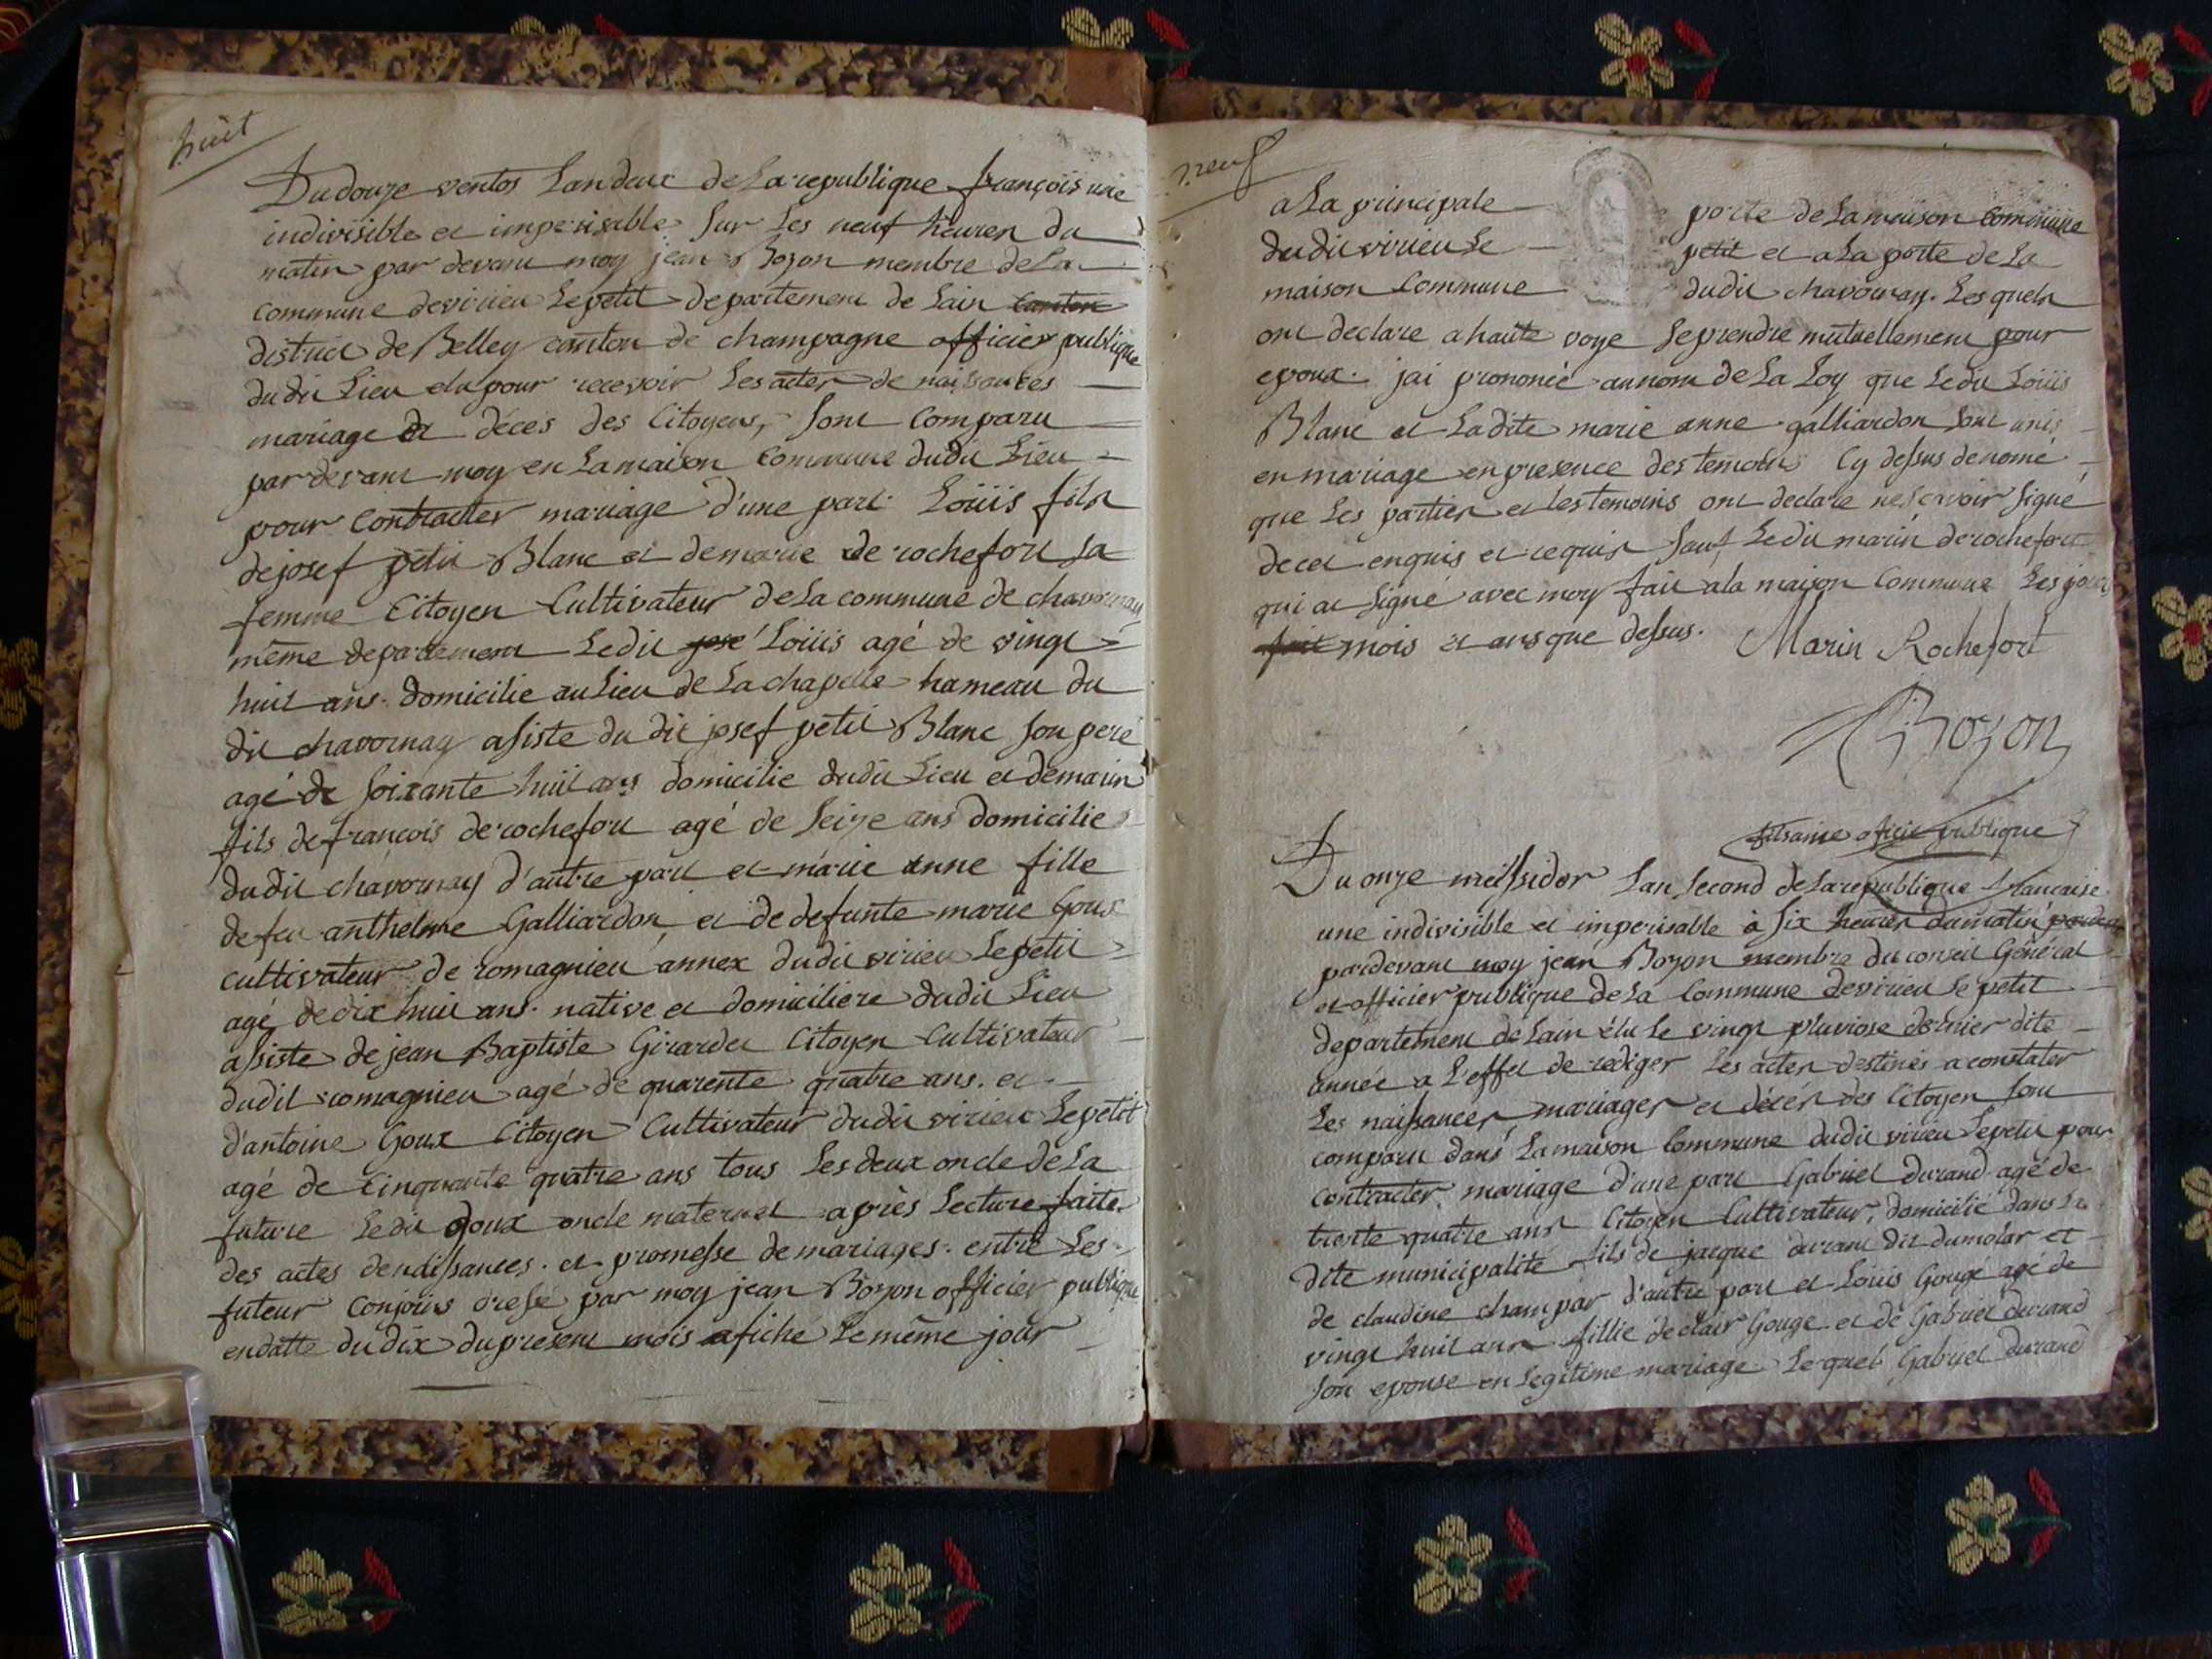 huit
Du douze ventos Lan deux de La republique françois une
indivisible et imperisable sur Les neuf heures du
matin par devant moy jean Bozon membre de La
commune de virieu Le petit departement de Lain canton
district de Belley canton de champagne officier publique
du dit Lieu elu pour recevoir Les actes de naissances
mariage et déces des Citoyens, sont Comparu
par devant moy en La maison Commune dudit Lieu
pour Contracter mariage d'une part Loüis fils
de josef petit Blanc et de marie de rochefort sa
femme Citoyen Cultivateur de La commune de chavornay
même departement Le dit josé Loüis agé de vingt
huit ans domicilie au Lieu de La chapelle hameau du
dit chavornay asiste du dit josef petit Blanc son pere
agé de soixante huit ans domicilie dudit Lieu et de marin
fils de francois de rochefort agé de seize ans domicilie
dudit chavornay d'autre part et marie anne fille
de feu anthelme Galliardon, et de defunte marie Goux
cultivateur de romagnieu annex dudit virieu Le petit
agé de dix huit ans native et domiciliere dudit Lieu
asiste de jean Baptiste Girardet Citoyen Cultivateur
dudit romagnieu agé de quarente quatre ans. et
d'antoine Goux Citoyen Cultivateur dudit virieu Le petit
agé de Cinquante quatre ans tous Les deux oncle de La
future Le dit goux oncle maternel après Lecture faite
des actes de naissances. et promesse de mariages. entre Les
futeur conjoins dresé par moy jean Bozon officier publique
en datte du dix du present mois afiché Le même jour
neuf
a La principale porte de La maison Commune
du dit virieu Le petit et a La porte de La
maison Commune dudit chavornay. Les quels
ont declare a haute voye se prendre mutuellement pour
epoux. jai prononcé au nom de La Loy que Le dit Loüis
Blanc et La dite marie anne galliardon sont unis
en mariage en presence des temoins Cy dessus denomé
que Les parties et Les temoins ont declare ne scavoir signé
de ce enquis et requis sauf Le dit marin de rochefort
qui at signé avec moy fait a la maison Commune Les jour
fait mois et ans que dessus. Marin Rochefort
Bozon
officie publique
Du onze messidor Lan second de La republique francaise
une indivisible et imperisable à six heures du matin
pardevant moy jean Bozon membre du conseil Général
et officier publique de La Commune de virieu Le petit
departement de Lain élu Le vingt pluviose dernier dite
année a L'effet de rediger Les actes destinés a constater
Les naissances, mariages et décés des Citoyen sont
comparu dans La maison Commune dudit virieu Le petit pour
contracter mariage d'une part Gabriel durand agé de
trente quatre ans Citoyen Cultivateur, domicilié dans La
dite municipalité fils de jacque durant dit dumolar et
de claudine champar d'autre part et Loüis Gouge agé de
vingt huit ans fillie de clair Gouge et de Gabriel durand
son epouse en Legitime mariage Lequel Gabriel durand